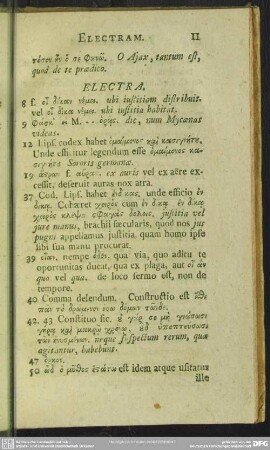 ELECTRAM. II
τόσον ὧν ὅ σε φανῶ. O Ajax, tantum est,
quod de te praedico.
ELECTRA.
8 f. οἷ δίκαν νέμει. ubi iustitiam distribuit.
vel οἷ δίκα νέμει. ubi iustitia habitat.
9 M. -- ὁρᾷς. dic, num Mycenas
videas.
12 Lips. codex habet ὁμαίμονος καὶ κασιγνήτης.
Unde efficitur legendum esse ὁμαίμονος κα-
σιγνήτης Sororis germanae.
19 f. ex auris vel ex aere ex-
cessit. deserunt auras nox atra.
37 Cod. Lips. habet unde efficio ἐν
δίκᾳ. Cohaeret χειρὸς cum ἐν δίκᾳ. ἐν δίκᾳ
χειρὸς κλέψαι σφαγὰς δόλοις, justitia vel
jure manus, brachii saecularis, quod nos jus
pugni appellamus justitia. quam homo ipse
sibi sua manu procurat.
39 nempe ὁδὸν, qua via, quo aditu te
oportunitas ducat, qua ex plaga, aut ἂν
quo vel qua. de loco sermo est, non de
tempore.
40 Comma delendum. Constructio est
πᾶν τὸ δρώμενον
42. 43 Constituo sic. οὐ γάρ σε μὴ γνώσωσι
γήρᾳ καὶ μακρῷ χρόνῳ, ὑποπτεύσωσι
neque suspectum rerum, quae
agitantur, habebunt.
47 ὅρκον.
50 ὁ μῦθος ἔστω est idem atque usitatius
ille